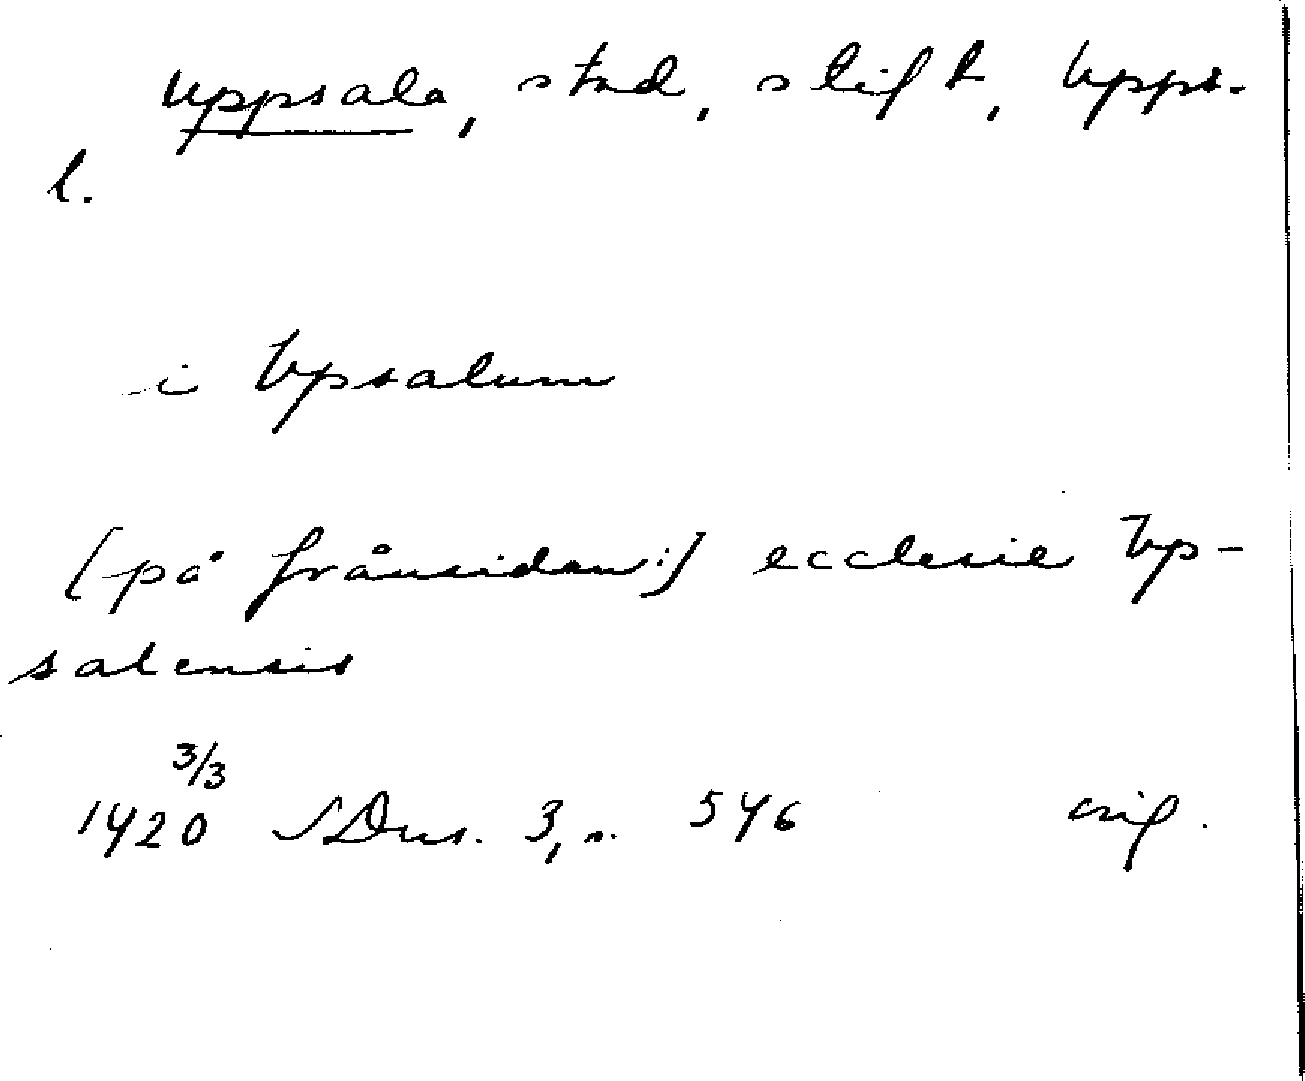 Uppsala, stad, stift, Upps-
l.
i Vpsalum
[på frånsidan:] ecclesie Vp-
salensis
3/3
1420 SDns. 3, s. 546 orig.